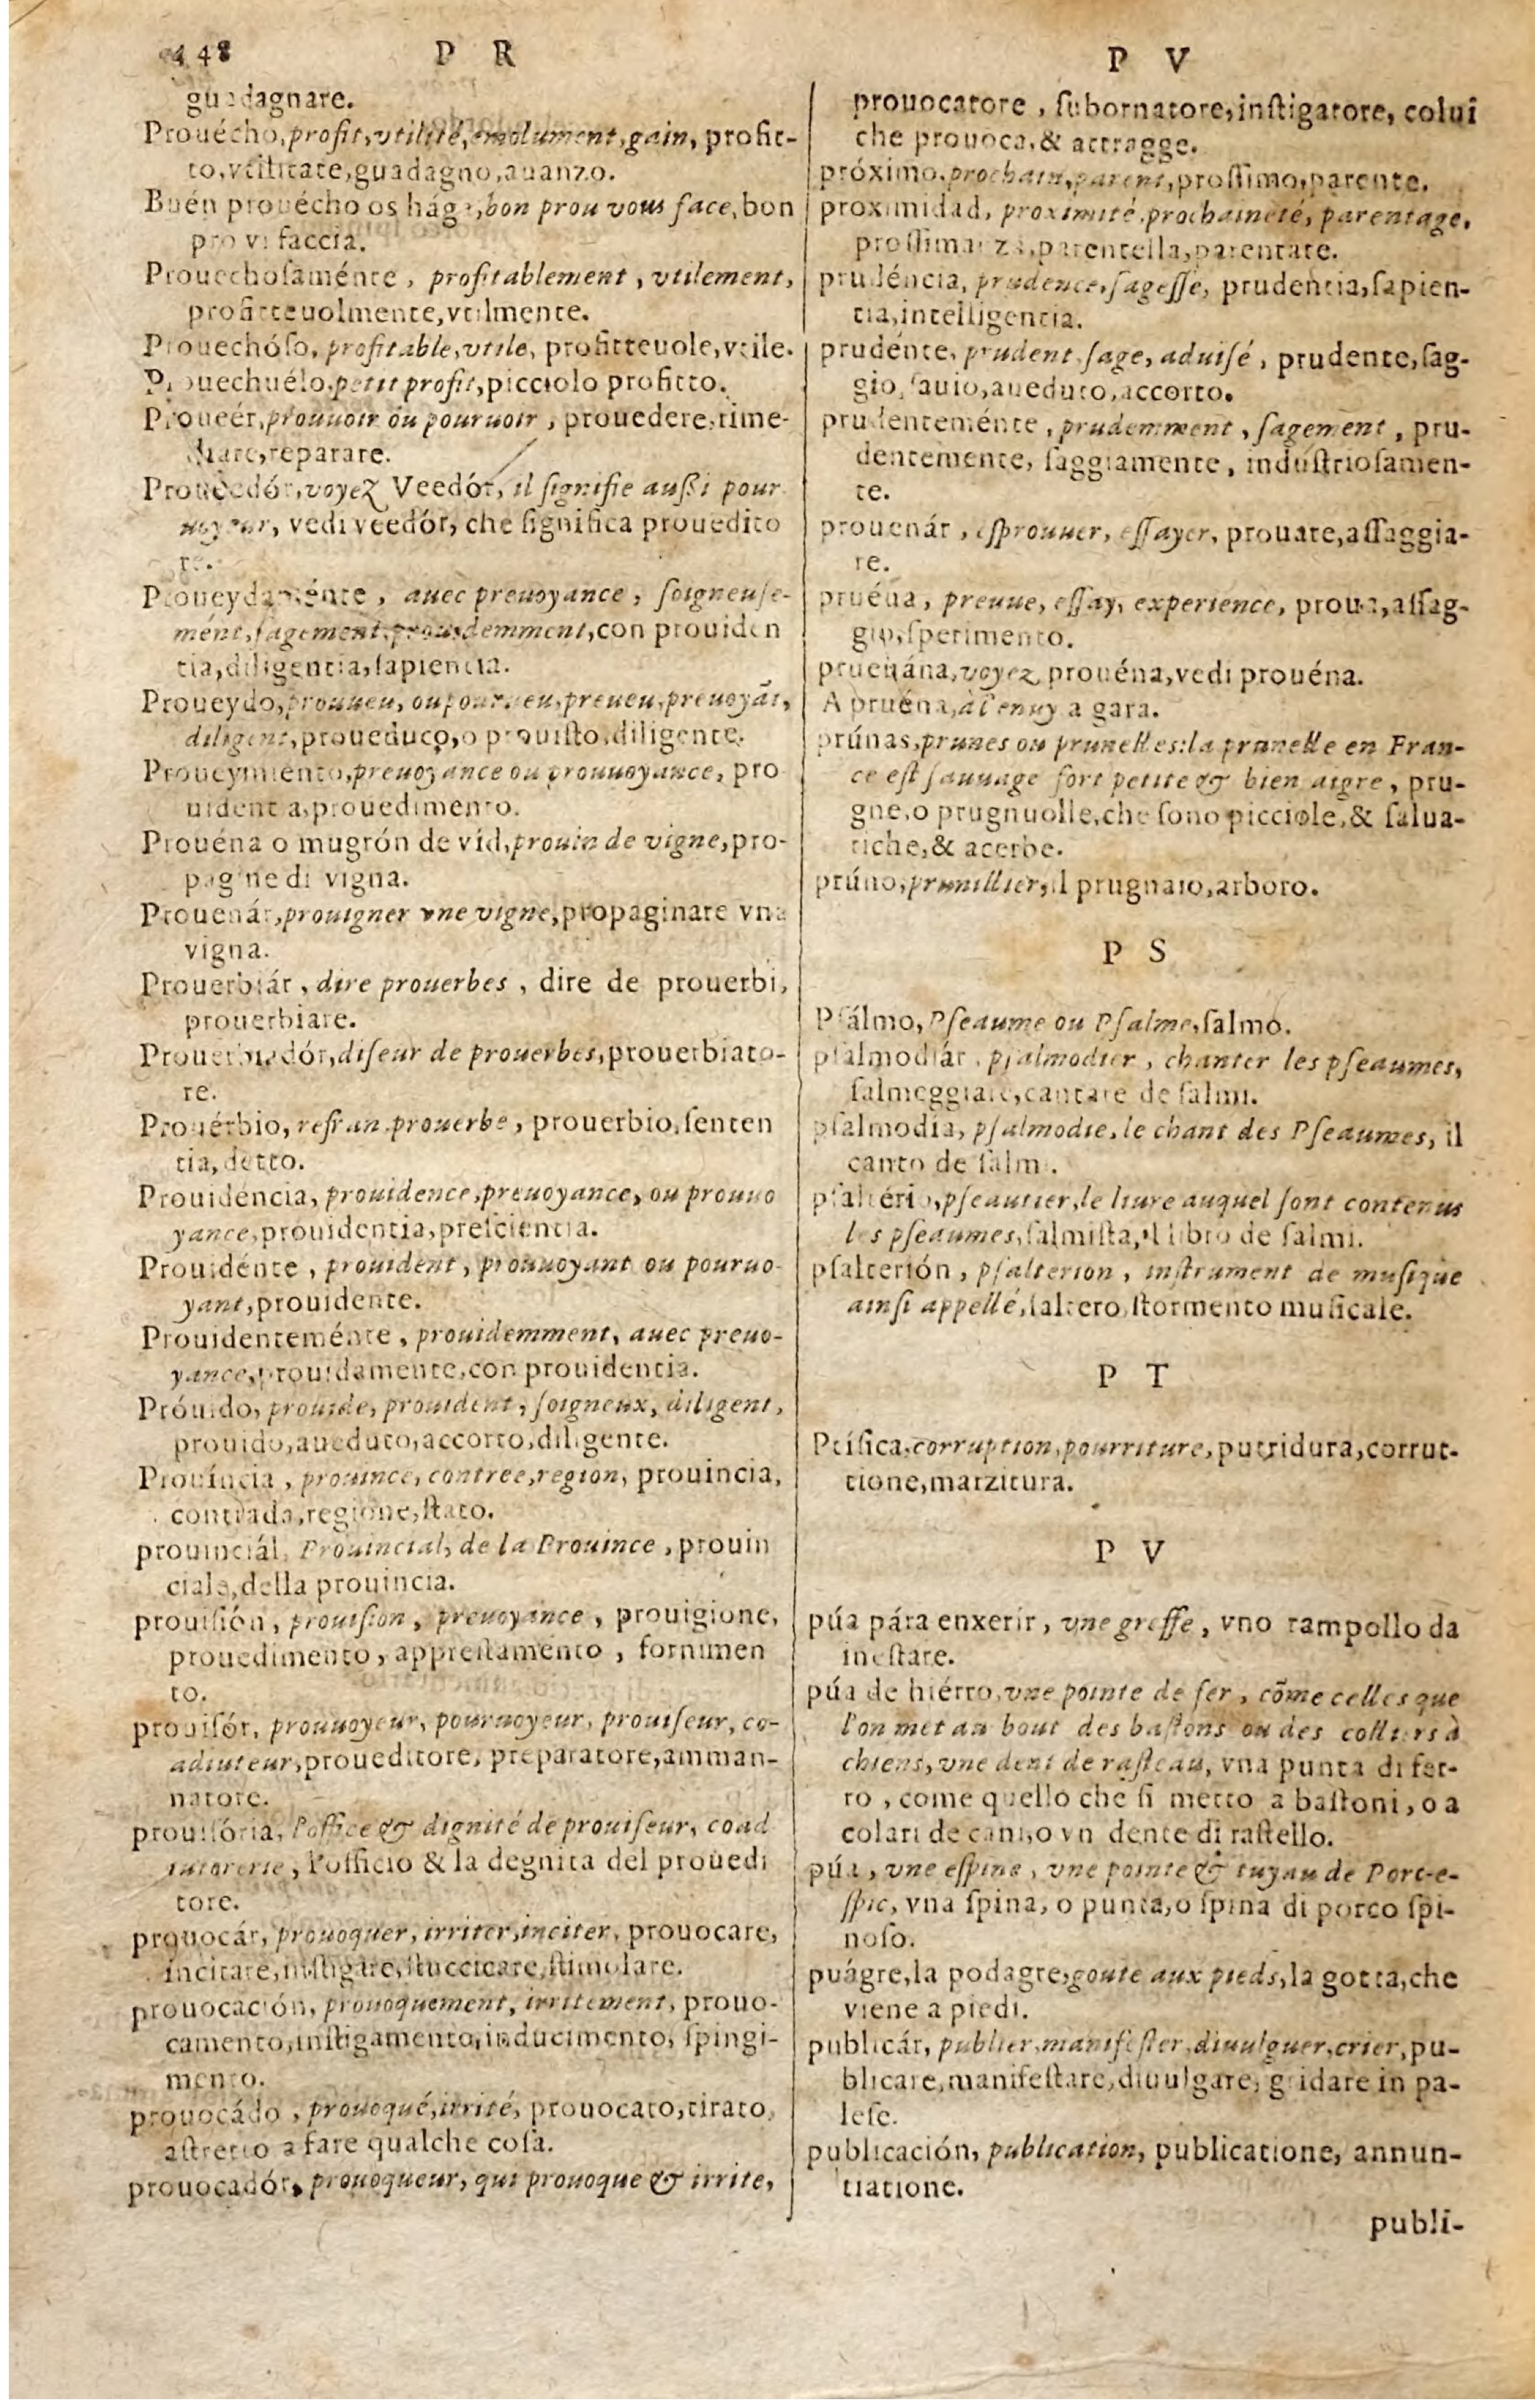 448 P R
guadagnare.
Prouécho, profit, vtilité, emolument, gain, profit-
to, vtilitate, guadagno, auanzo.
Buén prouécho os hága, bon prou vous face, bon
pro vi faccia.
Prouechoſaménte, profitablement, vtilement,
profitteuolmente, vtilmente.
Prouechóſo, profitable, vtile, profitteuole, vtile.
Prouechuélo, petit profit, picciolo profitto.
Proueér, prouuoir ou pouruoir, prouedere, rime-
diare, reparare.
Proueedór, voyez Veedór, il ſignifie auſsi pour
uoyeur, vedi veedór, che ſignifica proueditο
re.
Proueydaménte, auec preuoyance, ſoigneuſe-
mént, ſagement, prouidemment, con prouiden
tia, diligentia, ſapientia.
Proueydo, prouueu, ou pourueu, preueu, preuoyãt,
diligent, proueduto, o prouiſto, diligente.
Proueymiénto, preuoyance ou prouuoyance, pro
uidentia, prouedimento.
Prouéna o mugrón de vid, prouin de vigne, pro-
pagine di vigna.
Prouenár, prouigner vne vigne, propaginare vna
vigna.
Prouerbiár, dire prouerbes, dire de prouerbi,
prouerbiare.
Prouerbiadór, diſeur de prouerbes, prouerbiato-
re.
Prouérbio, refran, prouerbe, prouerbio, ſenten
tia, detto.
Prouidéncia, prouidence, preuoyance, ou prouuo
yance, prouidentia, preſcientia.
Prouidénte, prouident, prouuoyant ou pouruo-
yant, prouidente.
Prouidenteménte, prouidemment, auec preuo-
yance, prouidamente, con prouidentia.
Próuido, prouide, prouident, ſoigneux, diligent,
prouido, aueduto, accorto, diligente.
Prouíncia, prouince, contree, region, prouincia,
contrada, regione, ſtato.
prouinciál, Prouincial, de la Prouince, prouin
ciale, della prouincia.
prouiſión, prouiſion, preuoyance, prouigione,
prouedimento, appreſtamento, fornimen
to.
prouiſór, prouuoyeur, pouruoyeur, prouiſeur, co-
adiuteur, proueditore, preparatore, amman-
natore.
prouiſória, l'office & dignité de prouiſeur, coad
iutorerie, l'officio & la degnita del prouedi
tore.
prouocár, prouoquer, irriter, inciter, prouocare,
incitare, inſtigare, ſtuccicare, ſtimolare.
prouocación, prouoquement, irritement, prouo-
camento, inſtigamento, inducimento, ſpingi-
mento.
prouocádo, prouoqué, irrité, prouocato, tirato,
aſtretto a fare qualche coſa.
prouocadór, prouoqueur, qui prouoque & irrite,
P V
prouocatore, ſubornatore, inſtigatore, colui
che prouoca, & attragge.
próximo, prochain, parent, proſſimo, parente.
proximidad, proximité, prochaineté, parentage,
proſſimanza, parentella, parentate.
prudéncia, prudence, ſageſſe, prudentia, ſapien-
tia, intelligentia.
prudénte, prudent, ſage, aduiſé, prudente, ſag-
gio, ſauio, aueduto, accorto.
prudenteménte, prudemment, ſagement, pru-
dentemente, ſaggiamente, induſtrioſamen-
te.
prouenár, eſprouuer, eſſayer, prouare, aſſaggia-
re.
pruéua, preuue, eſſay, experience, proua, aſſag-
gio, ſperimento.
pruenána, voyez prouéna, vedi prouéna.
A pruéna, à l'enuy a gara.
prúnas, prunes ou prunelles: la prunelle en Fran-
ce eſt ſauuage fort petite & bien aigre, pru-
gne, o prugnuolle, che ſono picciole, & ſalua-
tiche, & acerbe.
prúno, prunillier, il prugnaio, arboro.
P S
Pſálmo, Pſeaume ou Pſalme, ſalmo.
pſalmodiár, pſalmodier, chanter les pſeaumes,
ſalmeggiare, cantare de ſalmi.
pſalmodía, pſalmodie, le chant des Pſeaumes, il
canto de ſalmi.
pſaltério, pſeautier, le liure auquel ſont contenus
les pſeaumes, ſalmiſta, il libro de ſalmi.
pſalterión, pſalterion, inſtrument de muſique
ainſi appellé, ſaltero, ſtormento muſicale.
P T
Ptíſica, corruption, pourriture, putridura, corrut-
tione, marzitura.
P V
púa pára enxerir, vne greffe, vno rampollo da
ineſtare.
púa de hiérro, vne pointe de fer, cõme celles que
l'on met au bout des baſtons ou des colliers à
chiens, vne dent de raſteau, vna punta di fer-
ro, come quello che ſi metto a baſtoni, o a
colari de cani, o vn dente di raſtello.
púa, vne eſpine, vne pointe & tuyau de Porc-e-
ſpic, vna ſpina, o punta, o ſpina di porco ſpi-
noſo.
puágre, la podagre, goute aux pieds, la gotta, che
viene a piedi.
publicár, publier, manifeſter, diuulguer, crier, pu-
blicare, manifeſtare, diuulgare, gridare in pa-
leſe.
publicación, publication, publicatione, annun-
tiatione.
publi-